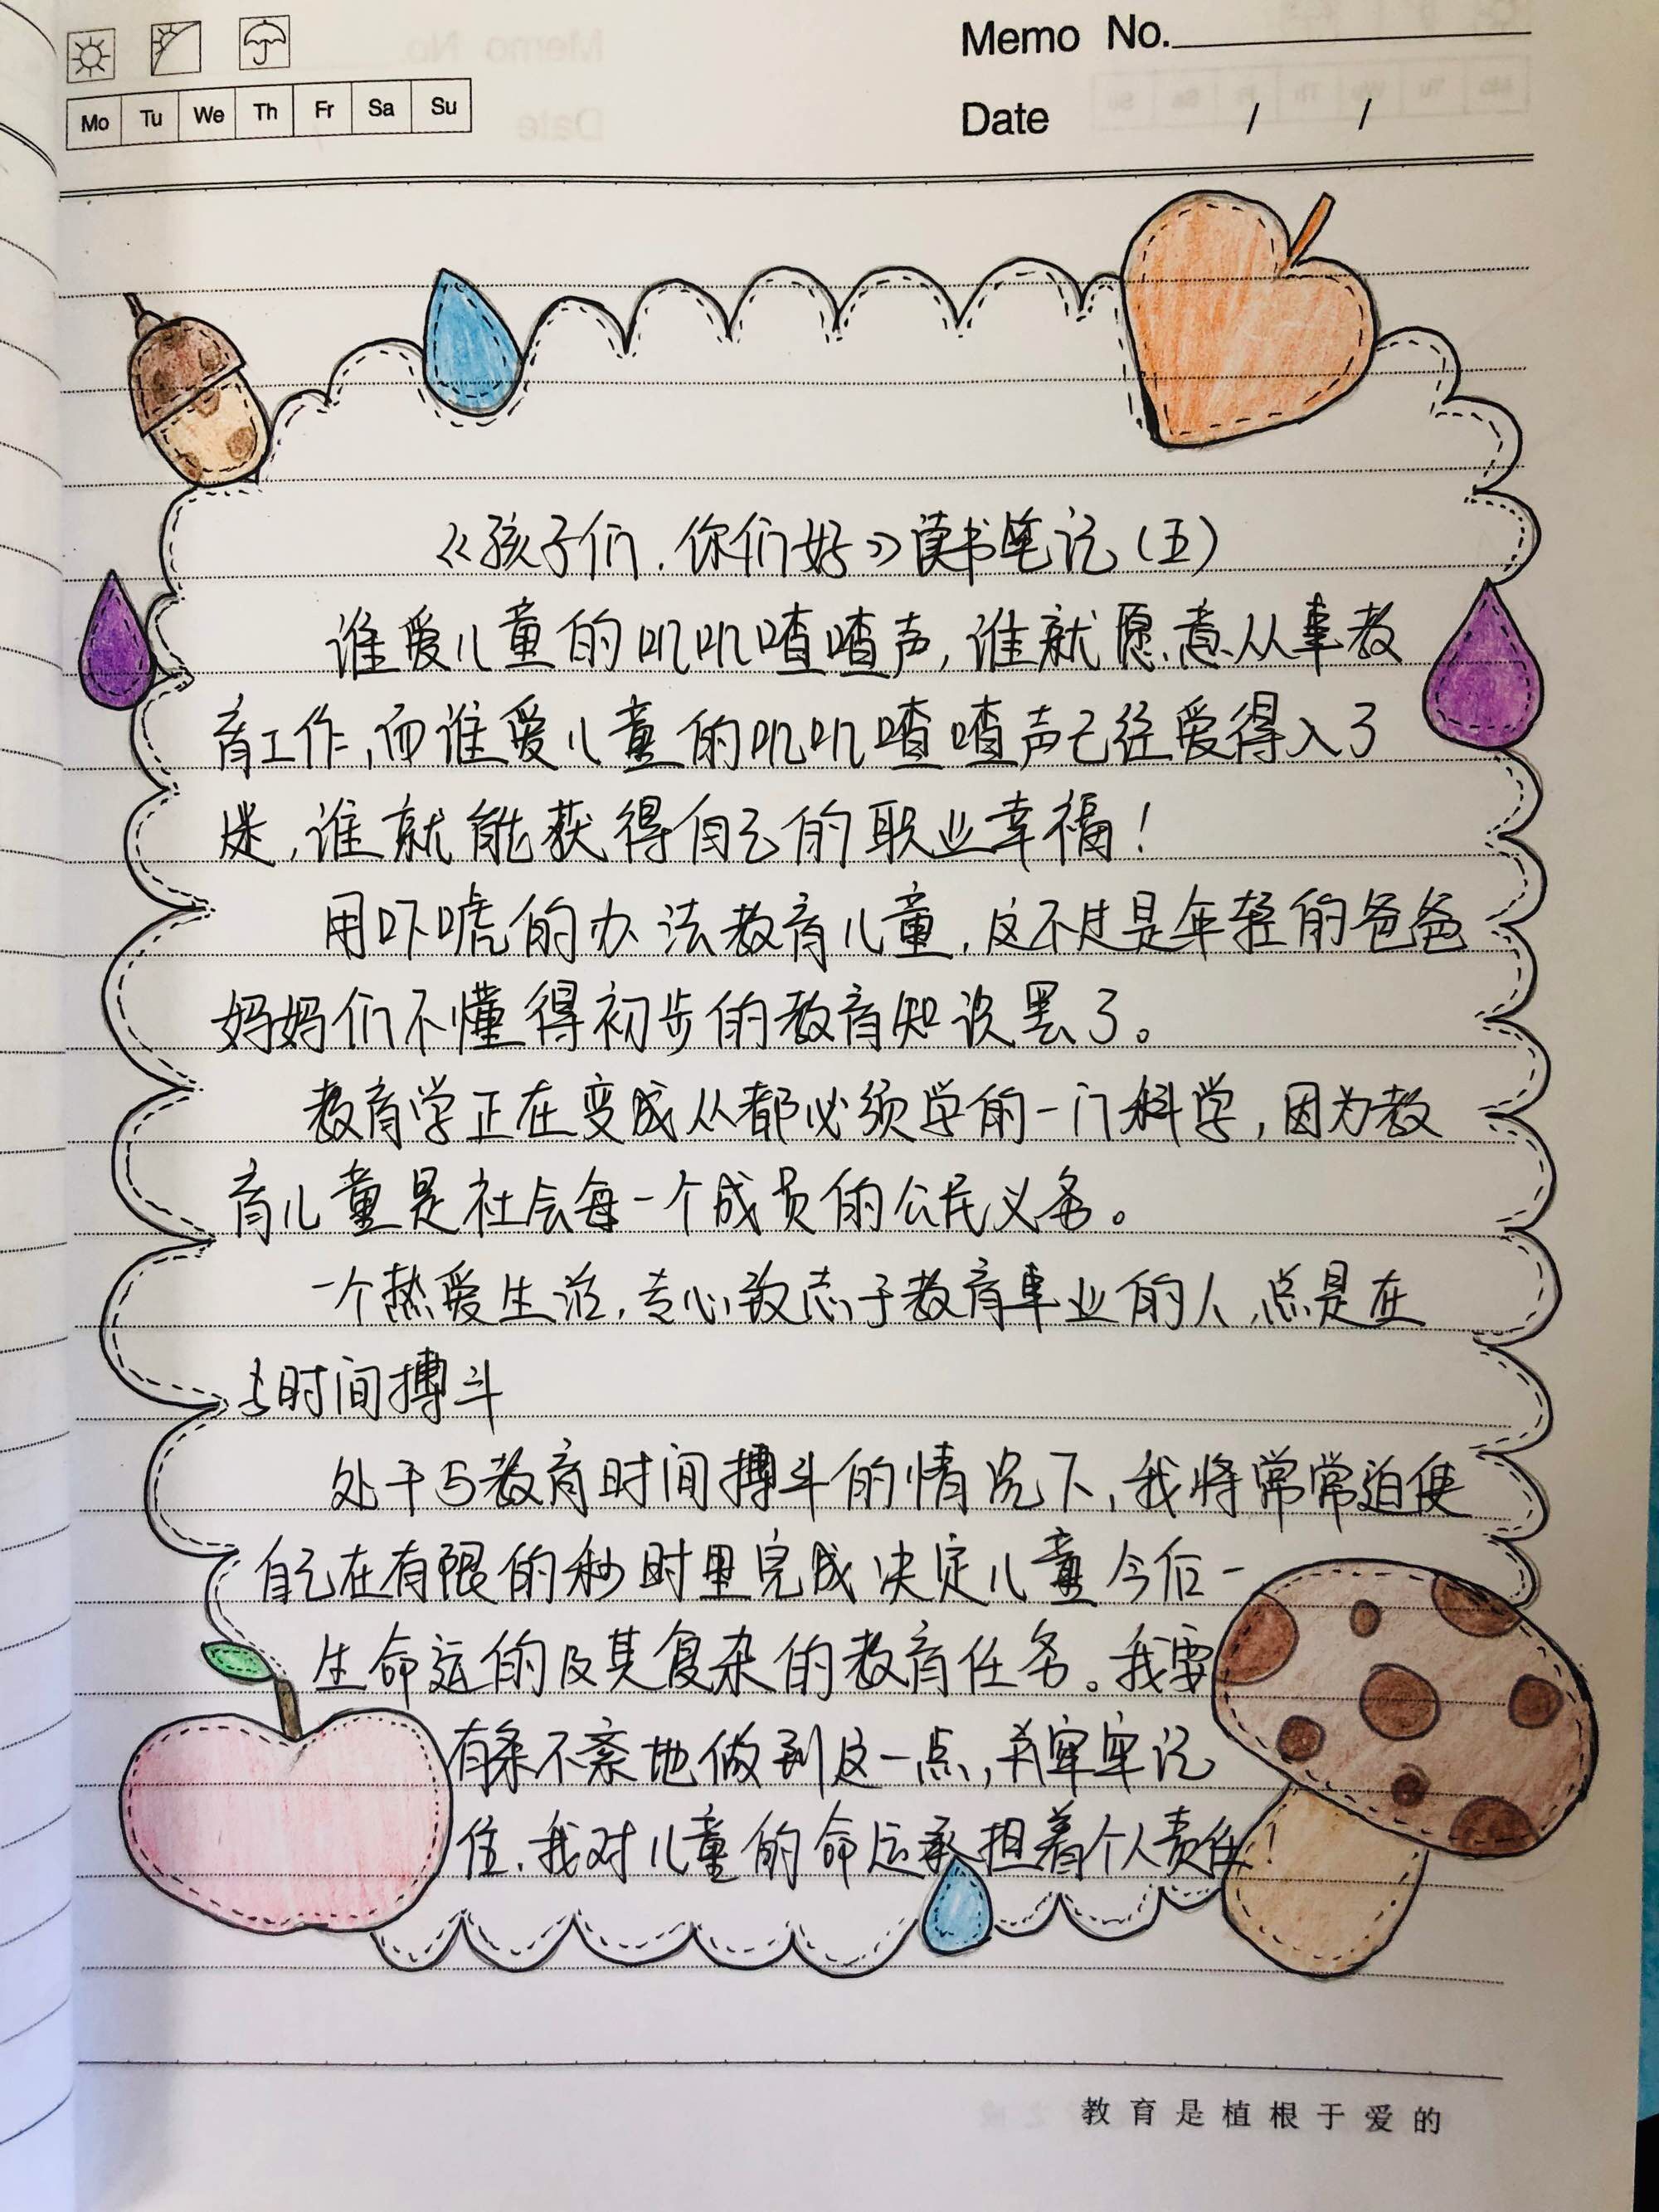 Memo No.
Mo Tu We Th Fr Sa Su
Date / /
《孩子们,你们好》读书笔记(五)
谁爱儿童的叽叽喳喳声,谁就愿意从事教
育工作,而谁爱儿童的叽叽喳喳声已经爱得入了
迷,谁就能获得自己的职业幸福!
用吓唬的办法教育儿童,这不过是年轻的爸爸
妈妈们不懂得初步的教育知识罢了。
教育学正在变成从都必须学的一门科学,因为教
育儿童是社会每一个成员的公民义务。
一个热爱生活,专心致志于教育事业的人,总是在
与时间搏斗
处于与教育时间搏斗的情况下,我将常常迫使
自己在有限的秒时里完成决定儿童今后一
生命运的及其复杂的教育任务。我要
有条不紊地做到这一点,并牢牢记
住,我对儿童的命运承担着个人责任!
教育是植根于爱的